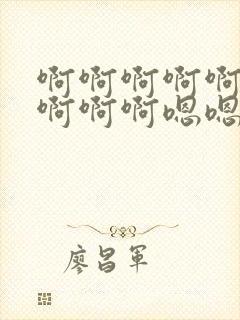 啊啊啊啊啊
啊啊啊嗯嗯
廖昌军